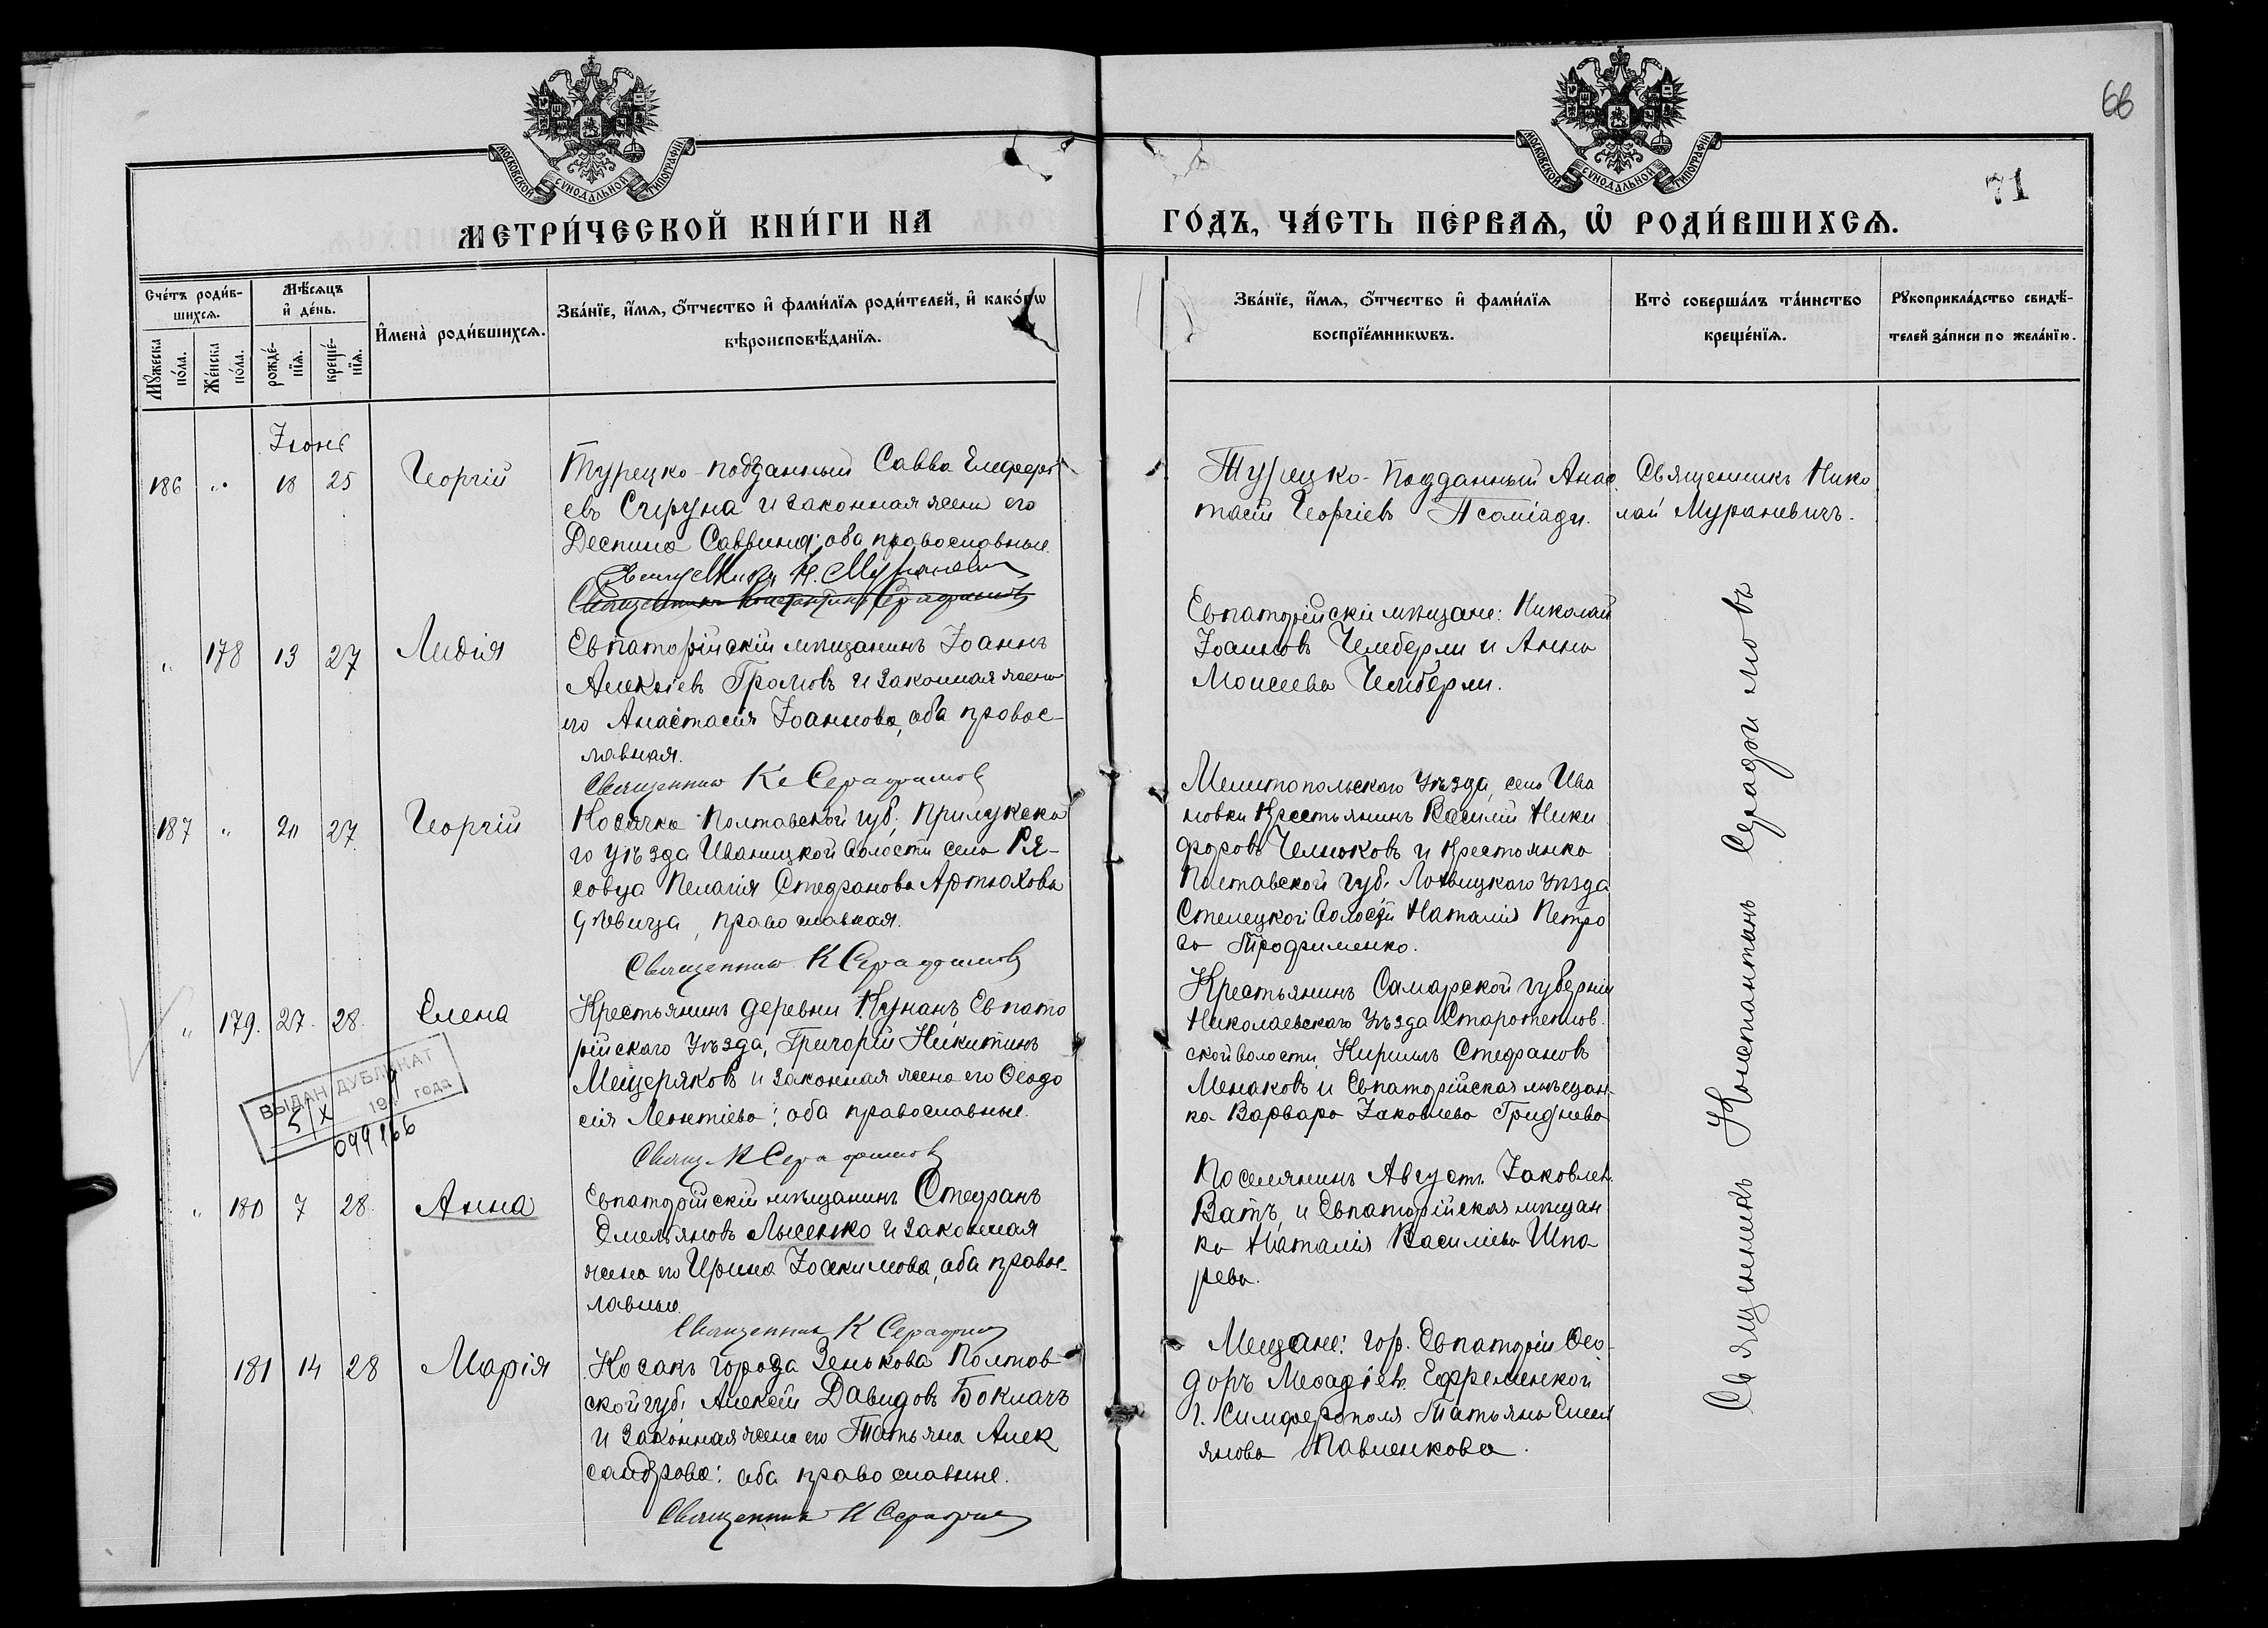 66
71
МОСКОВСКОЙ СѴНОДАЛЬНОЙ ТИПОГРАФІИ
МОСКОВСКОЙ СѴНОДАЛЬНОЙ ТИПОГРАФІИ
МЕТРИ́ЧЕСКОЙ КНИ́ГИ НА
ГО́ДЪ, ЧА́СТЬ ПЕ́РВАѦ, Ѡ҆ РОДИ́ВШИХСѦ.
Сче́тъ роди́в-
шихсѧ.
Мѣ́сѧцъ
и҆ де́нь.
И҆мена̀ роди́вшихсѧ.
Зва́нїе, и҆́мѧ, ѻ҆́тчество и҆ фами́лїѧ роди́телей, и҆ како́гѡ
вѣроисповѣ́данїѧ.
Мꙋ́жеска
по́ла.
Же́нска
по́ла.
рожде́-
нїѧ.
креще́-
нїѧ.
Зва́нїе, и҆́мѧ, ѻ҆́тчество и҆ фами́лїѧ
воспрїе́мникѡвъ.
Кто̀ соверша́лъ та́инство
креще́нїѧ.
Рꙋкоприкла́дство свидѣ́-
телей за́писи по жела́нїю.
Іюнь
186 " 18 25 Георгій
Турецко-подданный Савва Елефер
евъ Сируна и законная жена его
Деспина Саввина; оба православные.
Священникъ Н. Мураневич
Священникъ Константинъ Серафимов
Турецко-Подданный Анас
тасій Георгіевъ Псоміади.
Священникъ Нико
лай Мураневичъ.
" 178 13 27 Лидія
Евпаторійскій мѣщанинъ Іоаннъ
Алексіевъ Громовъ и законная жена
его Анастасія Іоаннова, оба правос-
лавная.
Священник К Серафимов
Евпаторійскіи мѣщане: Николай
Іоанновъ Чемберли и Анна
Моисеева Чемберли.
187 " 20 27 Георгій
Козачка Полтавской губ., Прилукска
го уѣзда Иваницкой Волости села
Пелагія Стефанова Артюхова
дѣвица, православная.
Священник К Серафимов
Мелитопольскаго Уѣзда, села Ива
новки Крестьянинъ Василій Ники
форовъ Челноковъ и Крестьянка
Полтавской губ. Лохвицкаго Уѣзда
Волости Наталія Петро
ва Трофименко.
" 179. 27. 28. Елена
Крестьянинъ деревни Евпато
рійскаго Уѣзда, Григорій Никитинъ
Мещеряковъ и законная жена его Ѳеодо
сія Леонтіева; оба православные.
Свящ. К Серафимов
Крестьянинъ Самарской губерніи
Николаевскаго Уѣзда
ской волости, Кириллъ Стефановъ
Менаковъ и Евпаторійская мѣщан-
ка Варвара Іаковлева Гриднева
ВЫДАН ДУБЛИКАТ
5/X 194 года
099166
" 180 7 28. Анна
Евпаторійскій мѣщанинъ Стефанъ
Емельяновъ Лысенко и законная
жена его Ирина Іоакимова, оба правос-
лавные.
Священник К Серафим
Поселянинъ Августъ Іаковлев.
Ватъ, и Евпаторійская мѣщан
ка Наталія Василіева Шпа
рева.
181 14 28 Марія
Козакъ города Зенькова Полтав
ской губ. Алексѣй Давидовъ Боклачъ
и законная жена его Татьяна Алек
сандрова: оба православные.
Священник К Серафим
Мещане: гор. Евпаторіи Ѳео-
доръ Ефременкой
г. Симферополя Татьяна Емел
янова Павленкова.
Священникъ Константинъ Серафимовъ